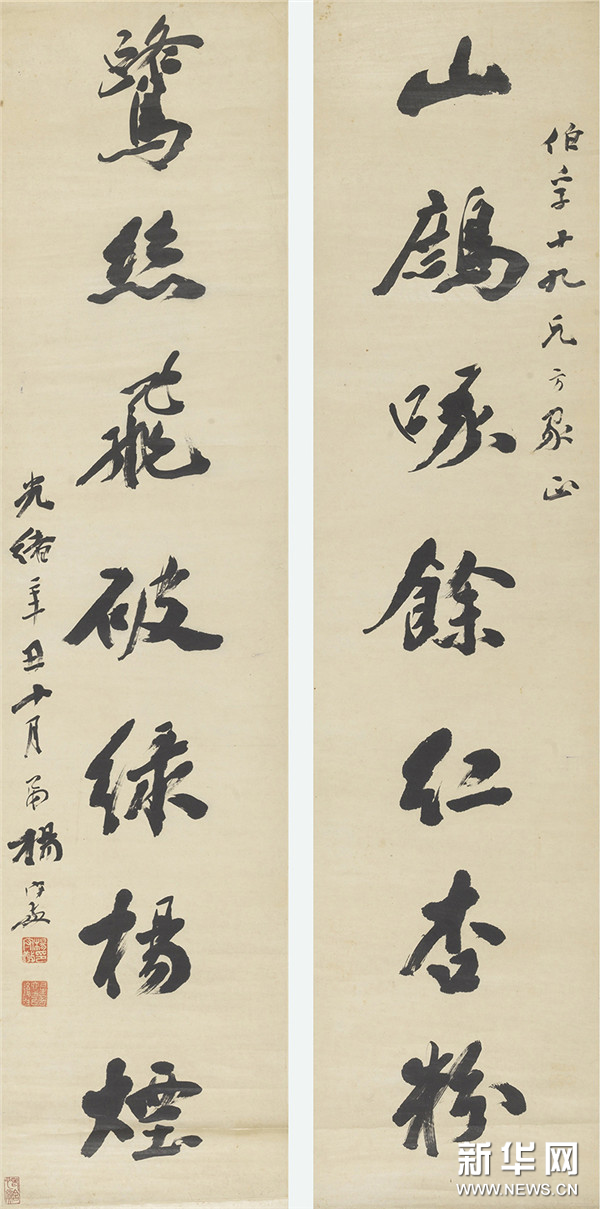 伯孚十九兄方家正
山鷓啄餘仁杏粉
鷺絲飛破綠楊煙
光緒辛丑十月弟楊
新华网
WWW.NEWS.CN